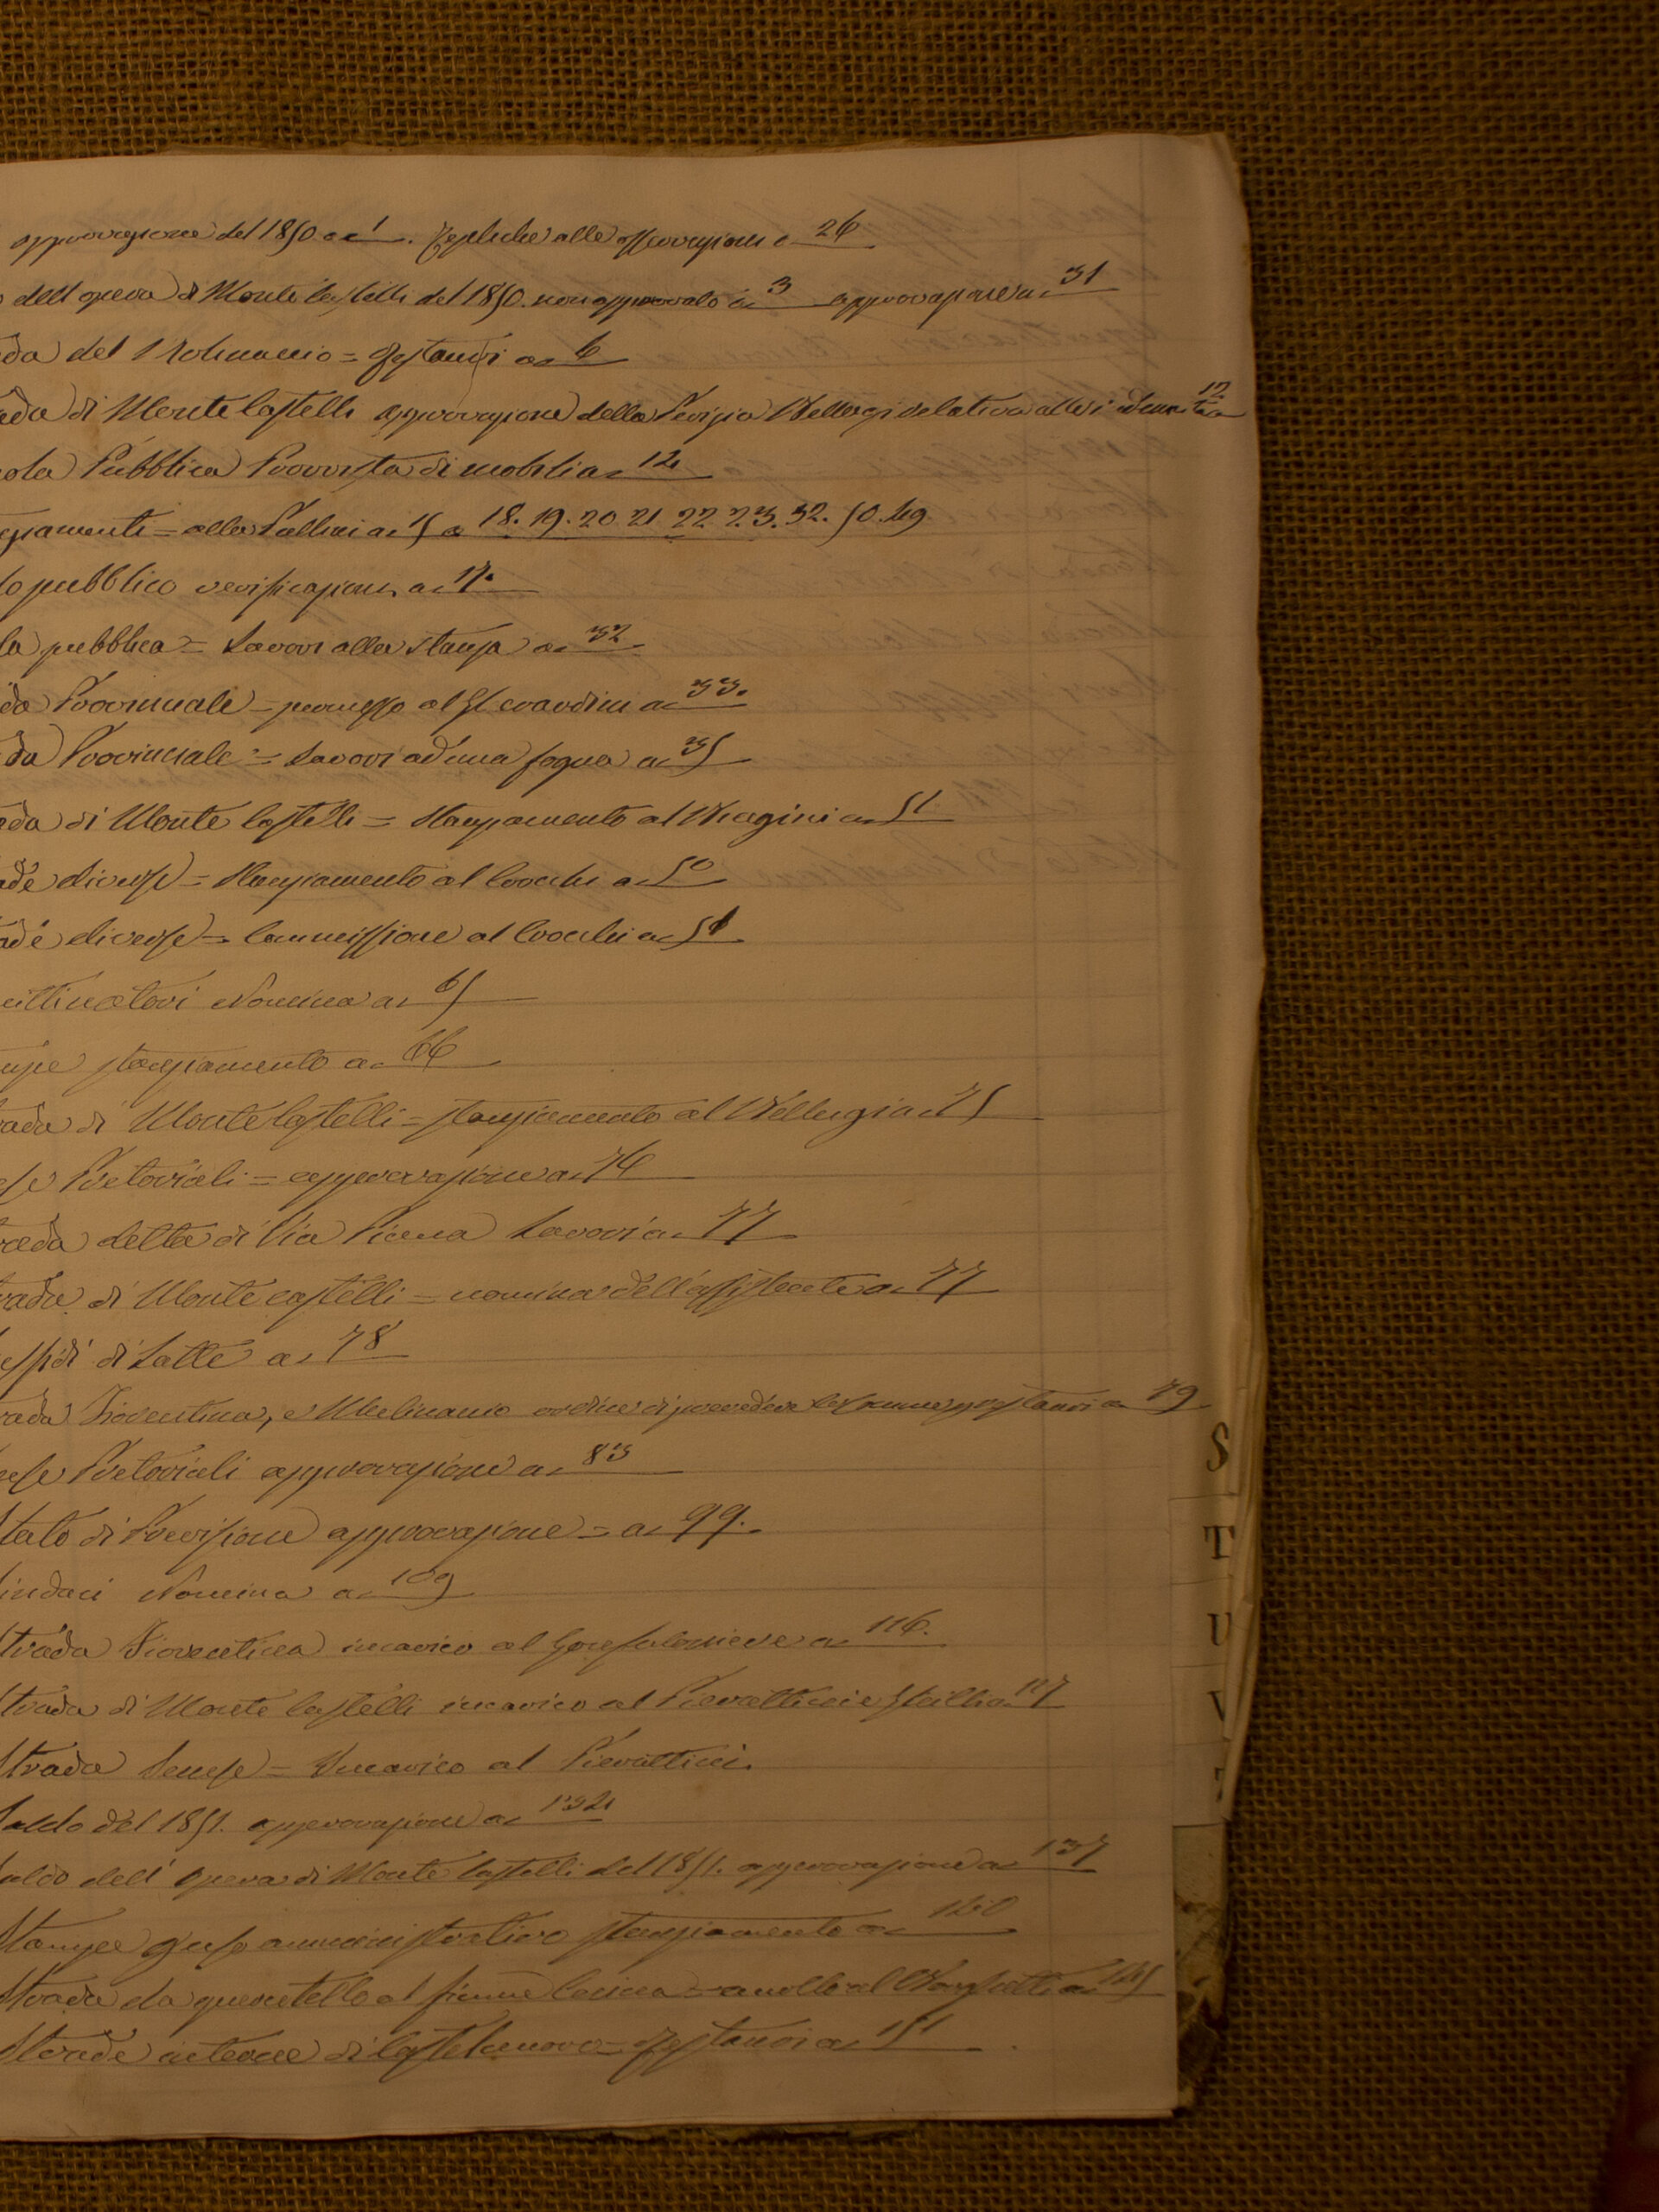 approvazione del 1850 a c 1. Repliche alle osservazioni a 26
dell'opera di Monte Castelli del 1850. non approvato a 3 approvazione a 31
da del Molinaccio = Restauri a 6
ada di Monte Castelli approvazione della Perizia Bellugi relativa alle indennità a 12
ola Pubblica Provvista di mobilia 12
ziamenti = alla Pallini a 15 a 18. 19. 20 21 22 23. 32. 50. 49
lo pubblico verificazioni a 17.
la pubblica = Lavori alla stanza a 32
da Provinciale = permesso al Gherardini a 33.
da Provinciale = Lavori ad una fogna a 35
ada di Monte Castelli = Stanziamento al Biagini a 51
ade diverse = Stanziamento al Crocchi a 50
ade diverse = Commissione al Crocchi a 51
uittinatori Nomina a 65
mpe stanziamento a 66
rada di Monte Castelli = stanziamento al Bellugi a 75
ese Pretoriali = approvazione a 76
rada detta di Via Piana Lavori a 77
rada di Monte castelli = nomina dell'assistente a 77
ussidi di Latte a 78
rada Fiorentina, e Molinaccio ordine di prevedere restauri a 79
ese Pretoriali approvazione a 83
Stato di Previsione approvazione = a 99.
indaci Nomina a 109
Strada Fiorentina incarico al Gonfaloniere a 116.
Strada di Monte Castelli incarico al Pierattini e 117
Strada Senese = Incarico al Pierattini.
Saldo del 1851. approvazione a 132
aldo dell'Opera di Monte Castelli del 1851. approvazione a 137
Stampe d'uso amministrativo stanziamento a 140
Strada da quercetello al fiume Cecina = accollo al a 145
Strade interne di Castelnuovo = Restauri a 151
S
T
U
V